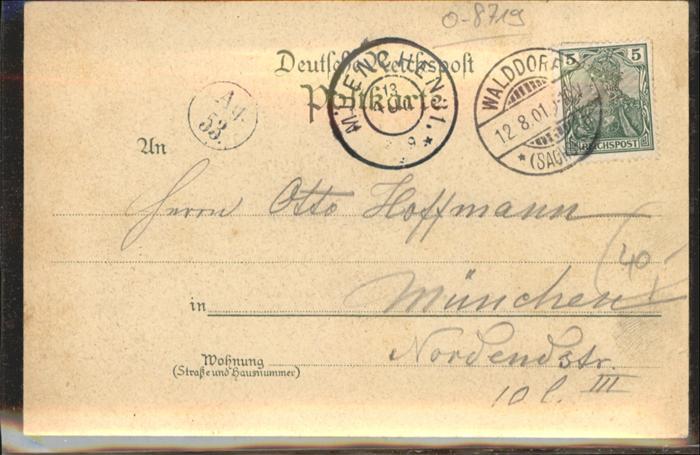 O-8719
Deutsche Reichspost
Postkarte
MUENCHEN 1.
13
9
WALDDORF
12.8.01
(SACHS
5 5
REICHSPOST
Ag.
53.
An
Herrn Otto Hoffmann
40
in München
Nordendstr.
Wohnung
(Straße und Hausnummer)
10 l. III